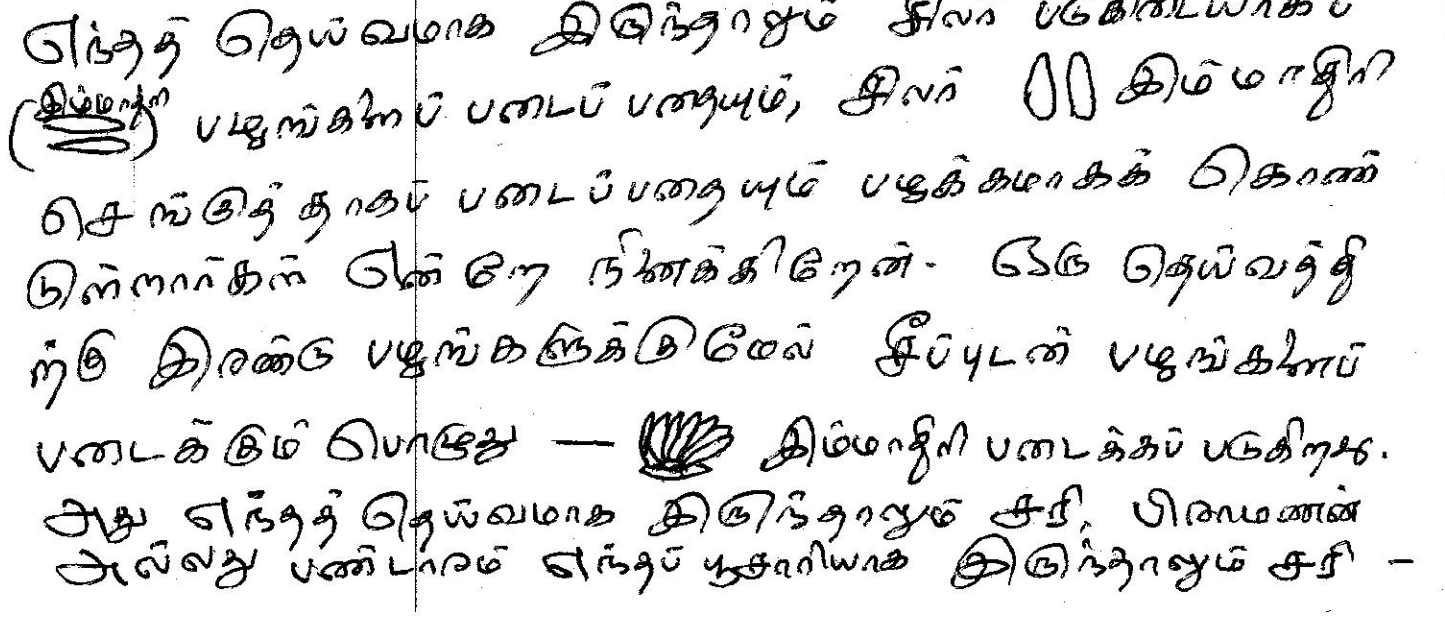 எந்தத் தெய்வமாக இருந்தாலும் சிலர் படுக்கிடையாகப்
(இம்மாதிரி) பழங்களைப் படைப் பதையும், சிலர் இம்மாதிரி
செங்குத்தாகப் படைப்பதையும் பழக்கமாகக் கொண்
டுள்ளார்கள் என்றே நினைக்கிறேன். ஒரு தெய்வத்தி
ற்கு இரண்டு பழங்களுக்குமேல் சீப்புடன் பழங்களைப்
படைக்கும் பொழுது — இம்மாதிரி படைக்கப் படுகிறது.
அது எந்தத் தெய்வமாக இருந்தாலும் சரி. பிராமணன்
அல்லது பண்டாரம் எந்தப் பூசாரியாக இருந்தாலும் சரி –